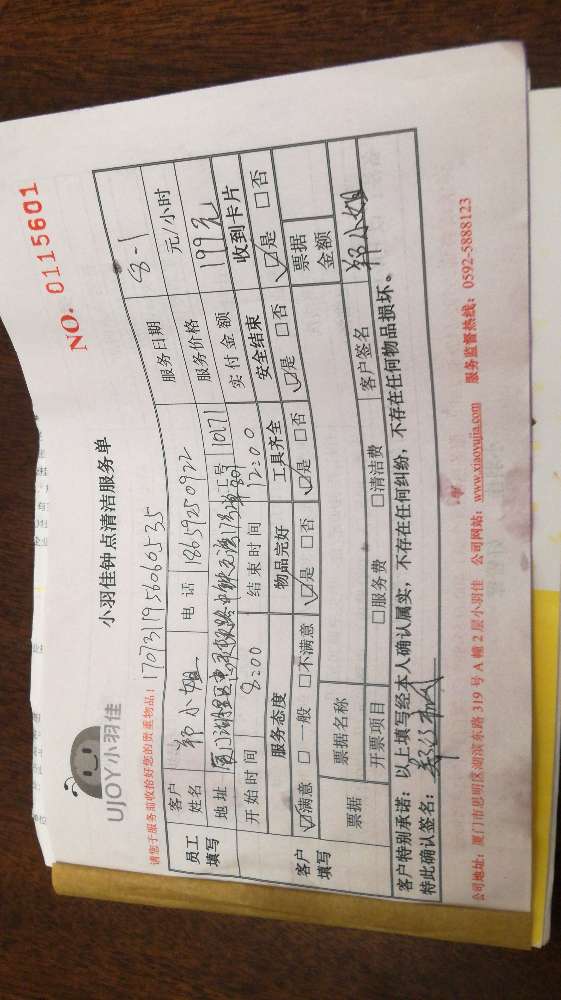 NO. 0115601
小羽佳钟点清洁服务单
UJOY小羽佳
请您于服务前收拾好您的贵重物品！
员工填写
客户姓名 郑小姐 电话 18659250922 服务日期 8-1
地址 工号 10171 服务价格 元/小时
开始时间 8:00 结束时间 12:00 实付金额 199元
客户填写
服务态度 物品完好 工具齐全 安全结束 收到卡片
☑满意 □一般 □不满意 ☑是 □否 ☑是 □否 ☑是 □否 ☑是 □否
票据 票据名称 票据金额
开票项目 □服务费 □清洁费 客户签名 郑小姐
客户特别承诺：以上填写经本人确认属实，不存在任何纠纷，不存在任何物品损坏。
特此确认签名：
公司地址：厦门市思明区湖滨东路 319 号 A 幢 2 层小羽佳 公司网站：www.xiaoyujia.com 服务监督热线：0592-5888123